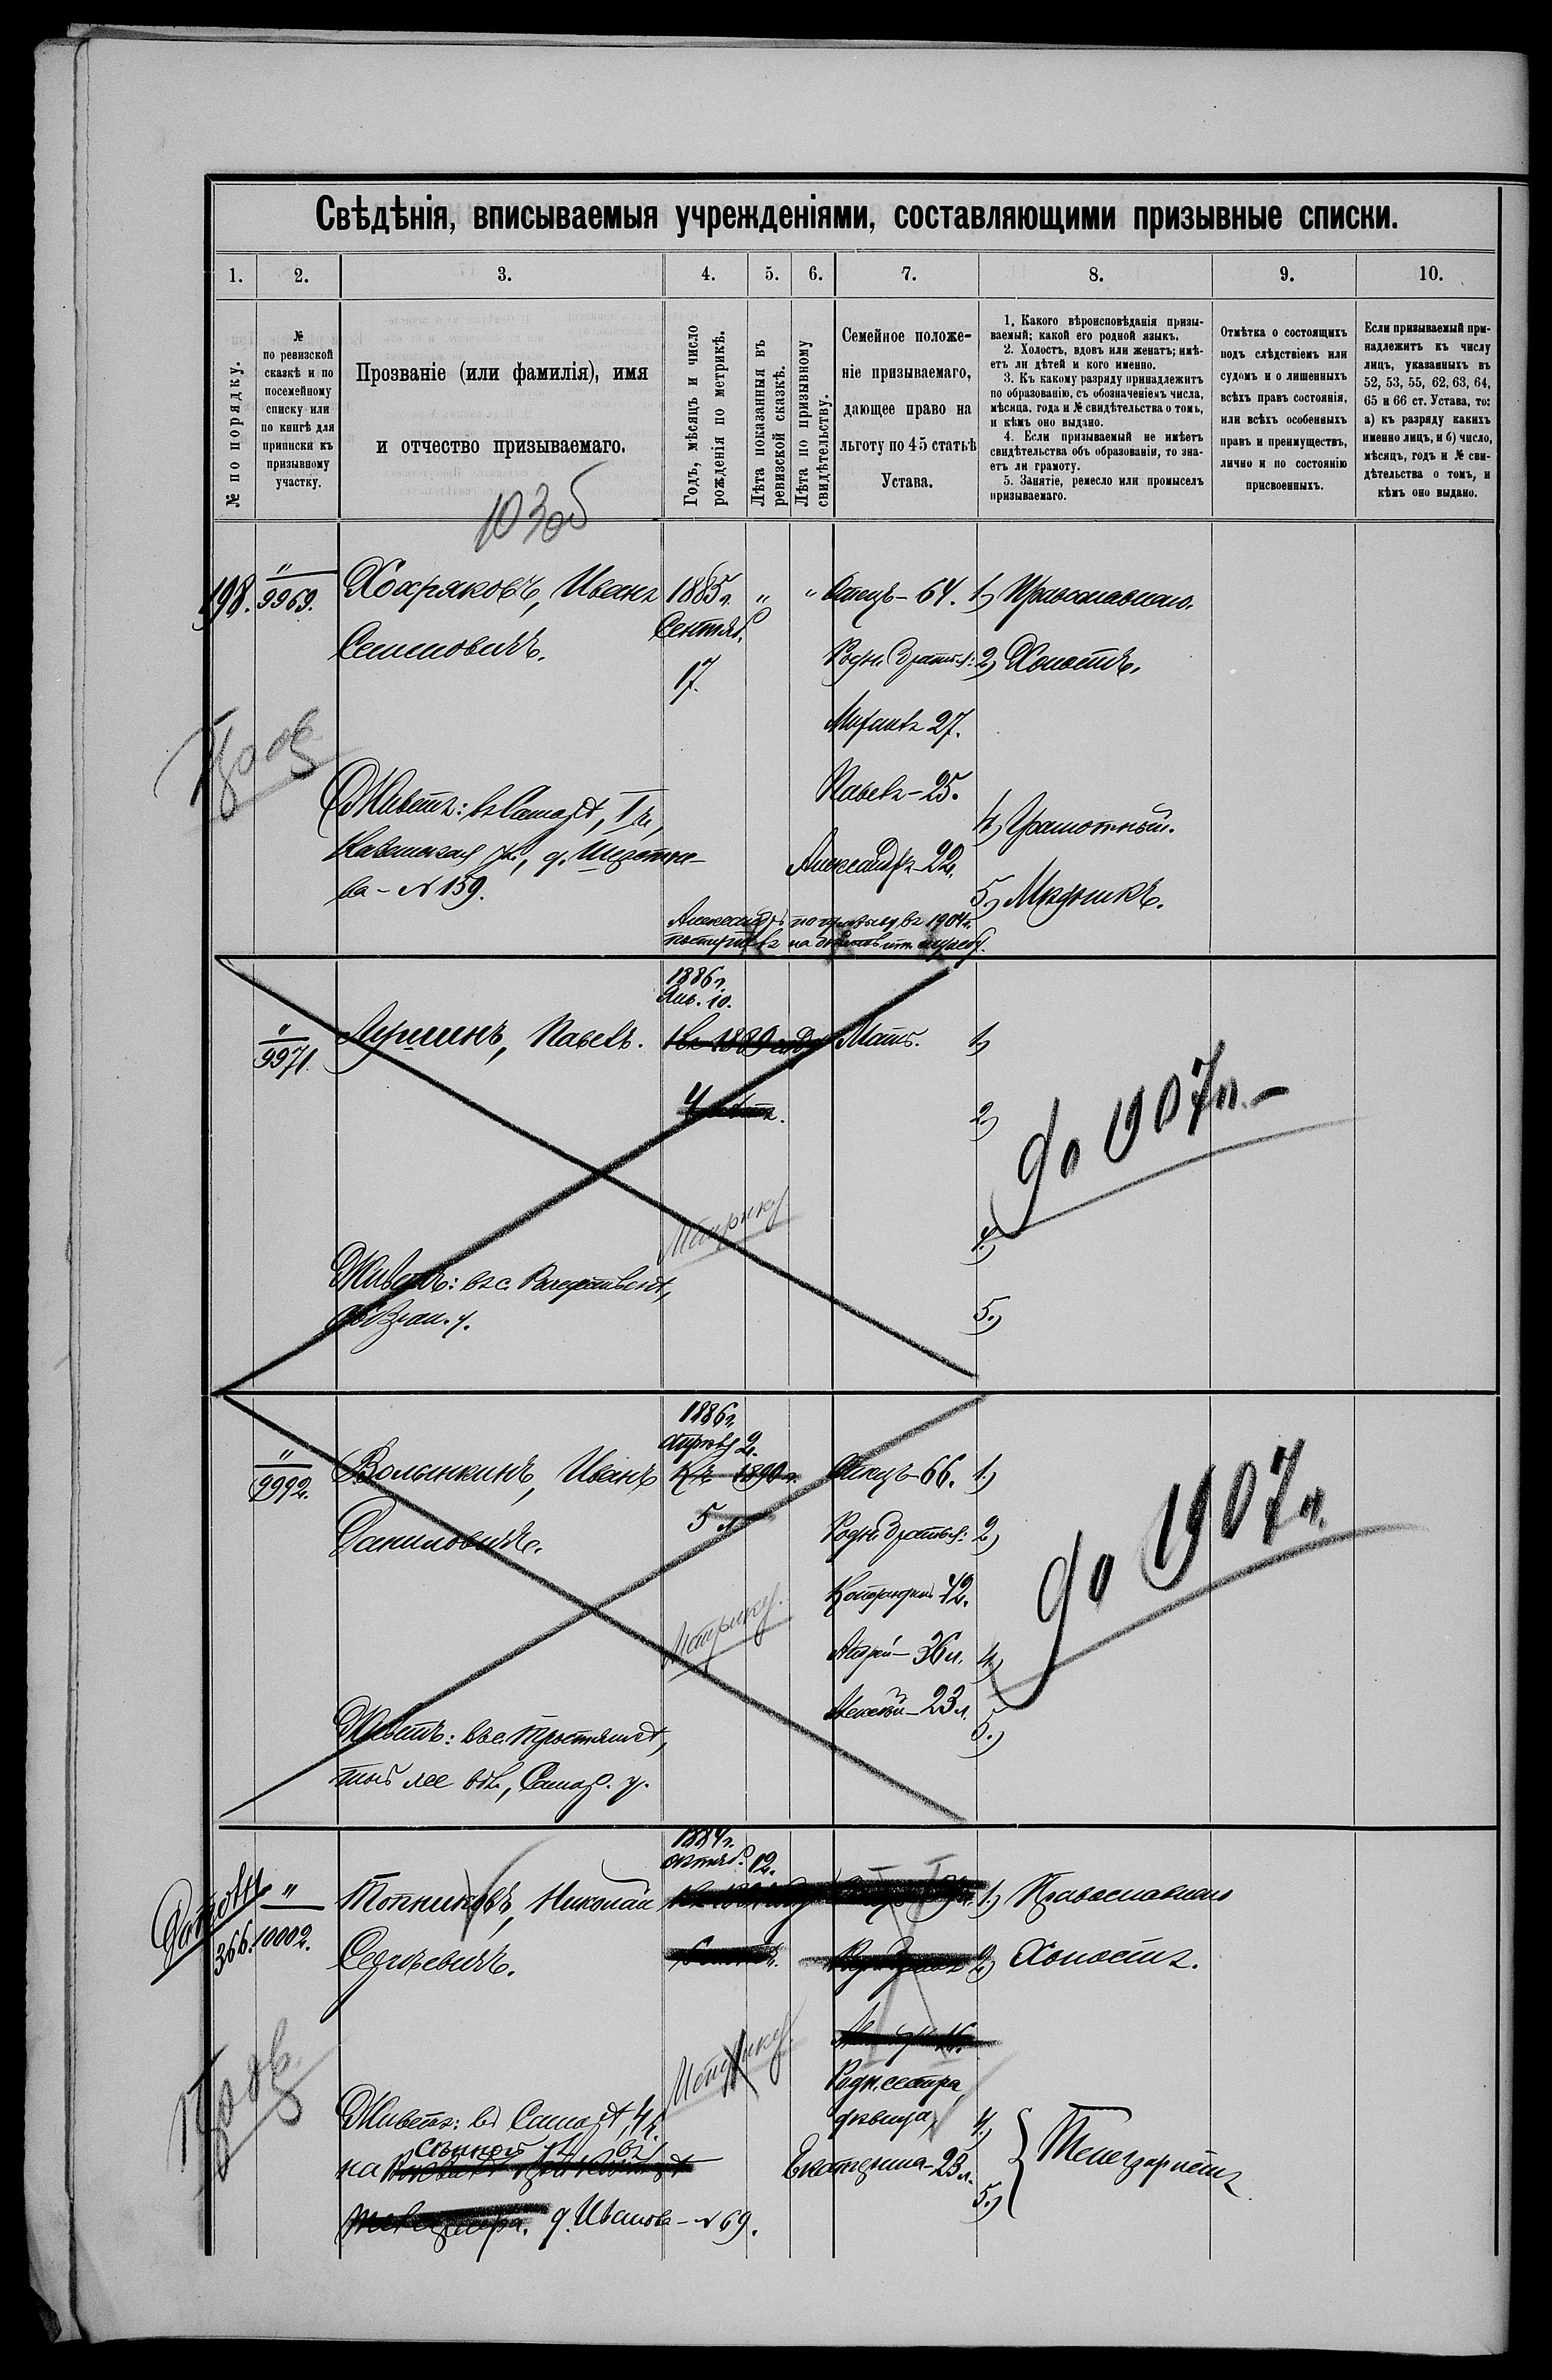 Свѣдѣнія, вписываемыя учрежденіями, составляющими призывные списки.
1. 2. 3. 4. 5. 6. 7. 8. 9. 10.
№ по порядку.
№
по ревизской
сказкѣ и по
посемейному
списку или
по книгѣ для
приписки къ
призывному
участку.
Прозваніе (или фамилія), имя
и отчество призываемаго.
Годъ, мѣсяцъ и число
рожденія по метрикѣ.
Лѣта показанныя въ
ревизской сказкѣ.
Лѣта по призывному
свидѣтельству.
Семейное положе-
ніе призываемаго,
дающее право на
льготу по 45 статьѣ
Устава.
1. Какого вѣроисповѣданія призы-
ваемый; какой его родной языкъ.
2. Холостъ, вдовъ или женатъ; имѣ-
етъ ли дѣтей и кого именно.
3. Къ какому разряду принадлежитъ
по образованію, съ обозначеніемъ числа,
мѣсяца, года и № свидѣтельства о томъ,
и кѣмъ оно выдано.
4. Если призываемый не имѣетъ
свидѣтельства объ образованіи, то зна-
етъ ли грамоту.
5. Занятіе, ремесло или промыселъ
призываемаго.
Отмѣтка о состоящихъ
подъ слѣдствіемъ или
судомъ и о лишенныхъ
всѣхъ правъ состоянія,
или всѣхъ особенныхъ
правъ и преимуществъ,
лично и по состоянію
присвоенныхъ.
Если призываемый при-
надлежитъ къ числу
лицъ, указанныхъ въ
52, 53, 55, 62, 63, 64,
65 и 66 ст. Устава, то:
а) къ разряду какихъ
именно лицъ, и б) число,
мѣсяцъ, годъ и № сви-
дѣтельства о томъ, и
кѣмъ оно выдано.
198. " 9969. Хохряковъ, Иванъ 1885 г. " " Отецъ - 64. 1) Православнаго.
Семеновичъ. Сентяб. Родн. братья: 2) Холостъ.
17.
27.
Павелъ - 25.
Живетъ: въ Самарѣ, I ч.,
4) Грамотный.
Казанская ул., д.
Александръ - 22.
ва - № 159.
5)
Александръ по призыву въ 1904 г.
1886 г.
Янв. 10.
" 9971. Павелъ. 1889 Мать. 1)
2)
до 1907 г. -
Метрику
4)
Живетъ: въ с. Рождественѣ,
5.)
1886 г.
2.
" 9992. Волынкинъ, Иванъ 1890 г. Отецъ - 66. 1.)
Даниловичъ. 5 л. Родн. братья: 2)
до 1907 г.
42.
Метрику.
Андрей - 36 л. 4.)
Алексѣй - 23 л.
5.)
Живетъ: въ с.
же вол., Самар. у.
1884 г.
октяб. 12.
366. " 10002. Николай 1.) Православнаго
Сергѣевичъ. 2) Холостъ.
Метрику.
Родн. сестра,
дѣвица, 4.)
Живетъ: въ Самарѣ, 4 ч.
Екатерина - 23 л.
на
5.)
д. Иванова - № 69.